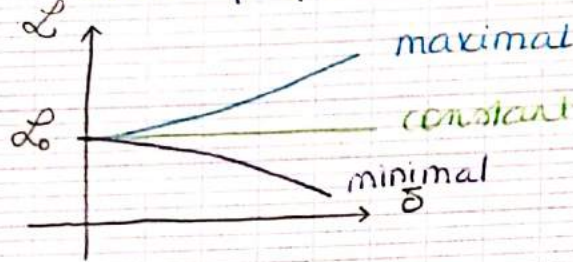 ℒ
maximal
ℒ₀
constant
minimal
δ